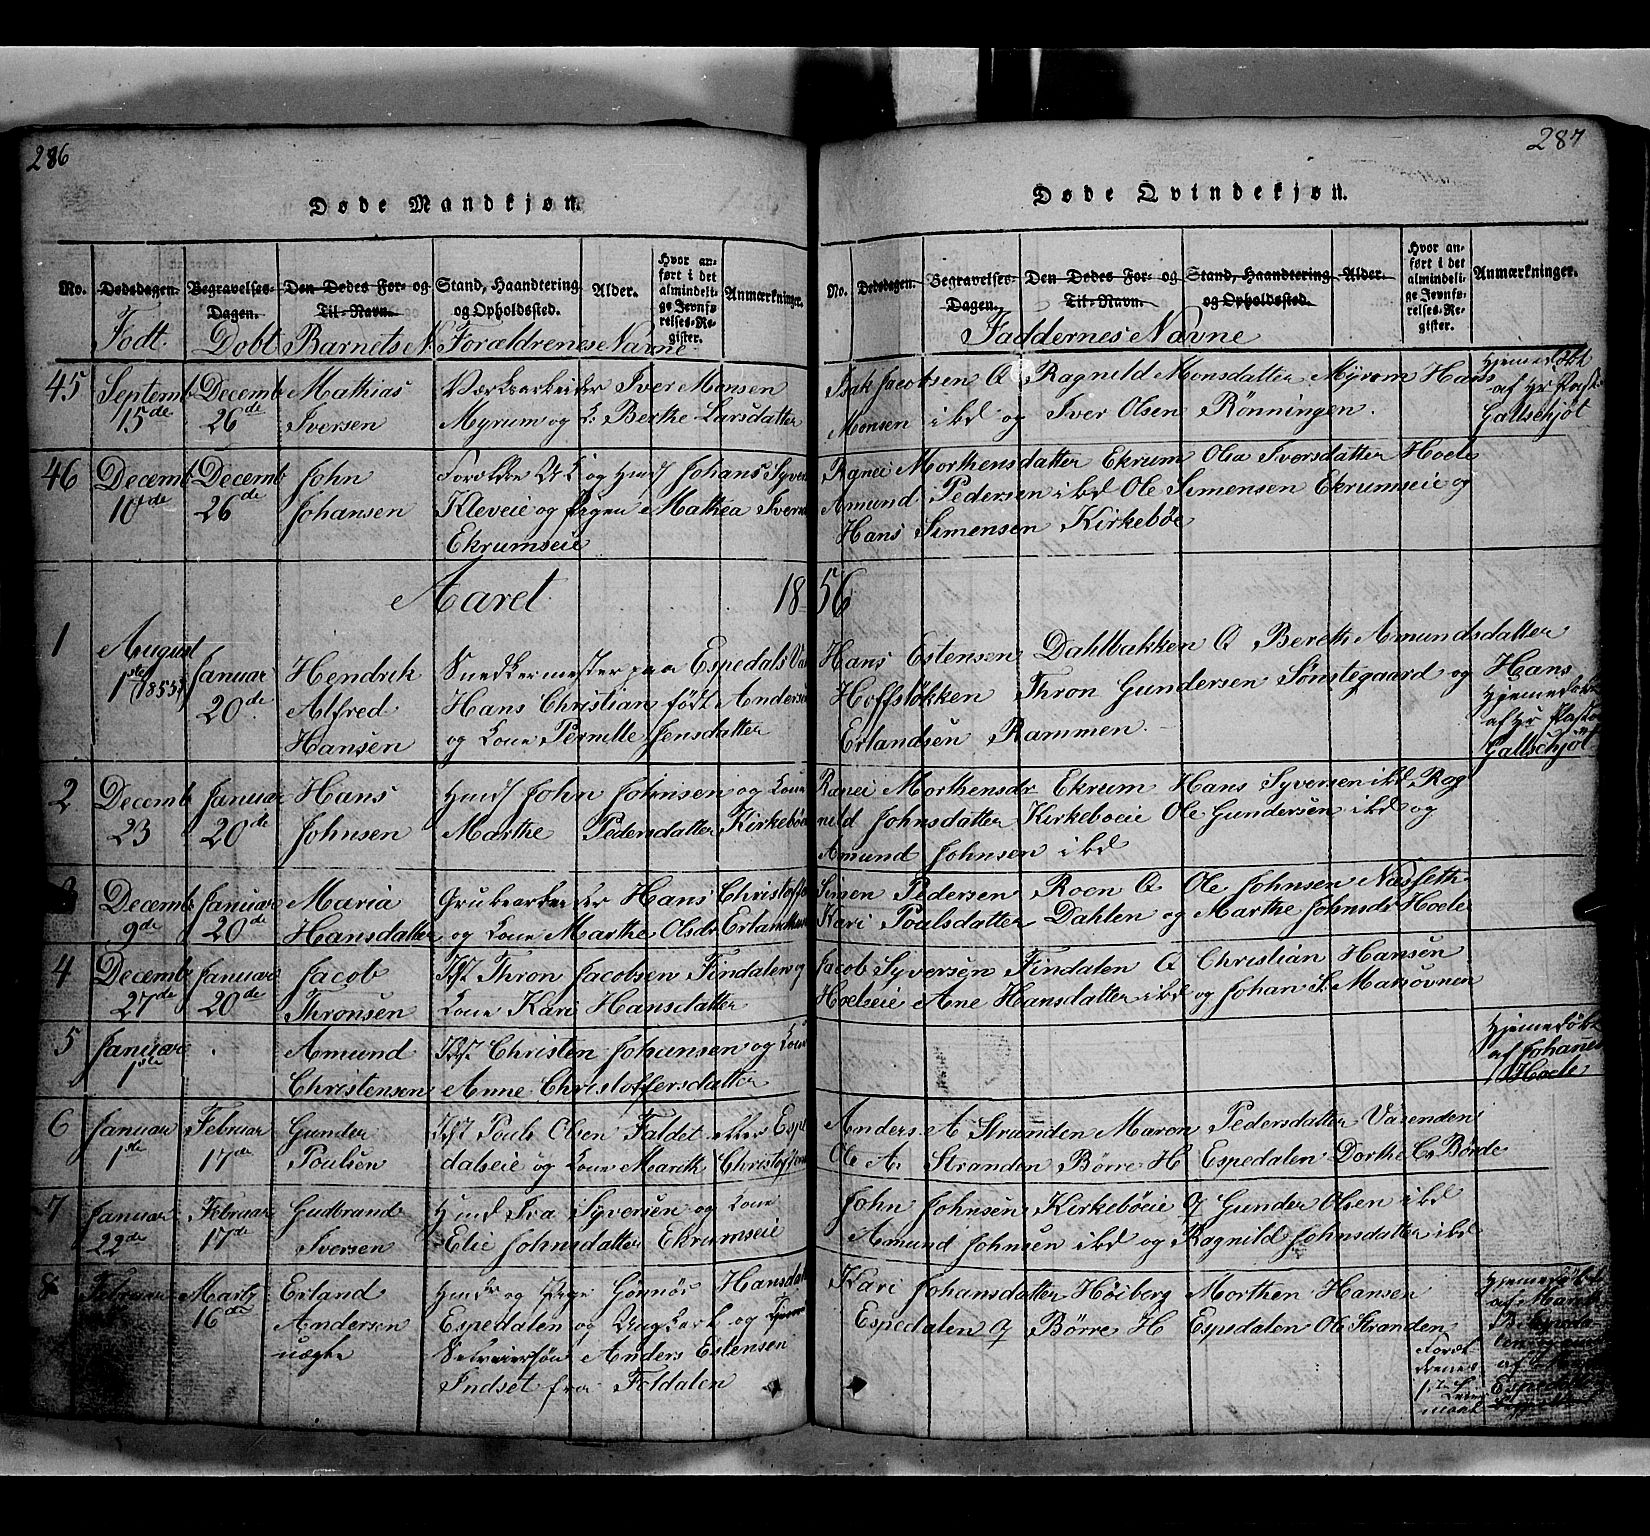 286
Døde Mandkjøn.
No.
Dødsdagen.
Født.
Begravelses-
Dagen.
Døbt
Den Dødes For- og
Til-Navn.
Barnets N.
Stand, Haandtering
og Opholdssted.
Forældrenes Navne
Alder.
Hvor an-
ført i det
almindeli-
ge Jevnfø-
relses-Re-
gister.
Anmærkninger.
45
Septemb
15de
Decemb
26de
Mathias
Iversen
Værksarbeider Iver Monsen
Myrum og K: Berthe Larsdatter
46
Decemb
10de
Decemb
26de
John
Johansen
Johans Syver
Kleveie og Pigen Mathea Ivers
Ekrumseie
Aaret 1856
1
August
1ste 1855
Januar
20de
Hendrik
Alfred
Hansen
Snedkermester paa Espedals V
Hans Christian født Anders
og Kone Pernille Jensdatter
2
Decemb
23
Januar
20de
Hans
Johnsen
Huusm John Johnsen og Kone
Marthe Pedersdatter Kirkebøe
3
Decemb
9de
Januar
20de
Maria
Hansdatter
Grubearbeider Hans Christoffe
og Kone Marthe Olsdr Erland
4
Decemb
27de
Januar
20de
Jacob
Thronsen
Thron Jacobsen Findalen og
Kone Kari Hansdatter
5
Januar
1ste
Amund
Christensen
Christen Johansen og Kone
Anne Christoffersdatter
6
Januar
1ste
Februar
17de
Gunder
Poulsen
Pouls Olsen Faldet eller Espe
dalseie og Kone Marith Christoffers
7
Januar
22de
Februar
17de
Gudbrand
Iversen
Huusm Iva Syversen og Kone
Elie Johnsdatter Ekrumseie
8
Februar
Marty
16de
Erland
Andersen
uægte
og Pige Gønnor Hansdat
Espedalen og Ungkarl og
Anders Estensen
Indset fra Foldalen
287
Døde Qvindekjøn.
No.
Dødsdagen.
Begravelses-
Dagen.
Den Dødes For- og
Til-Navn.
Stand, Haandtering
og Opholdssted.
Alder.
Hvor an-
ført i det
almindeli-
ge Jevnfø-
relses-Re-
gister.
Anmærkninger.
Faddernes Navne
Isak Jacobsen Q Ragnild Monsdatter Myrom Hans
Monsen ibd og Iver Olsen Rønningen.
Hjemedøbt
af Hr Past
Gallschjöt
Ranei Morthensdatter Ekrum Olia Iversdatter Hoele
Amund Pedersen ibd Ole Simensen Ekrumseie og
Hans Simensen Kirkebøe
Hans Estensen Dahlbakken Q Berethe Amundsdatter
Hoffsløkken Thron Gundersen Sønstegaard og Hans
Erlandsen Rammen.
Hjemedøbt
af Hr Pasto
Gallschjöt
Ranei Morthensdr Ekrum Hans Syversen ibd Rag
nild Johnsdatter Kirkeboeie Ole Gundersen ibd og
Amund Johnsen ibd
Simen Pedersen Roen Q Ole Johnsen Næsseth
Kari Poulsdatter Dahlen og Marthe Johnsdr Hoele
Jacob Syversen Findalen Q Christian Hansen
Hoeleeie Ane Hansdatter ibd og Johan S. Masovnen
Hjemedøbt
af Johanes
Hoele
Anders A Stranden Maron Pedersdatter Vasenden
Ole A. Stranden Børre H Espedalen Dorthe C. Børde
John Johnsen Kirkebøeie Q Gunder Olsen ibd
Amund Johnsen ibd og Ragnild Johnsdatter ibd
Kari Johansdatter Høiberg Morthen Hansen
Espedalen Q Børre H Espedalen Ole Stranden
Foræl
drenes
1ste Leier
maal
Hjemedøbt